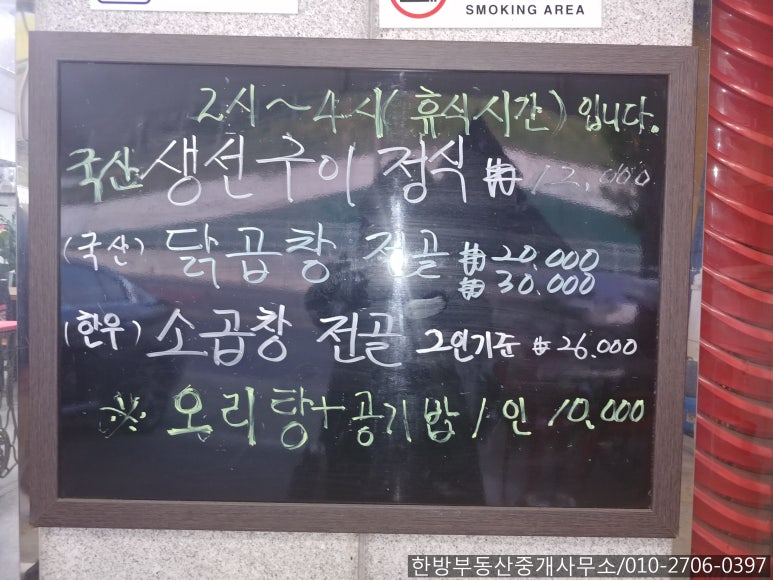 SMOKING AREA
2시~4시(휴식시간)입니다.
국산 생선구이 정식 ₩12,000
(국산) 닭곱창 전골 ₩20.000
₩30.000
(한우) 소곱창 전골 2인기준 ₩26.000
※ 오리탕+공기밥 1인 10.000
한방부동산중개사무소/010-2706-0397